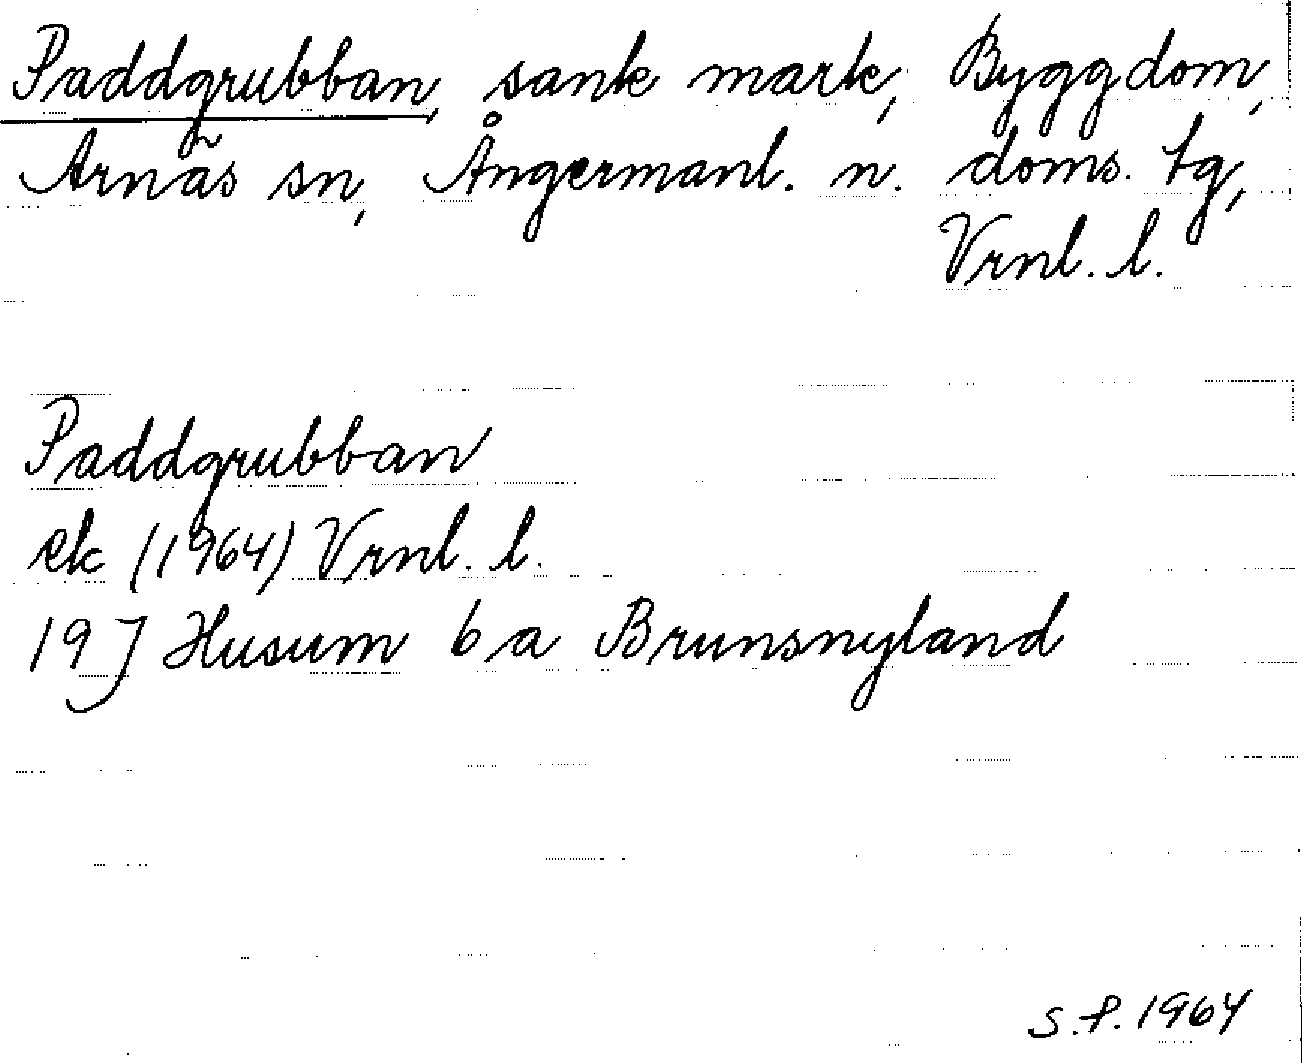 Paddgrubban, sank mark, Byggdom,
Arnäs sn, Ångermanl. n. doms. tg,
Vrnl. l.
Paddgrubban
ek (1964) Vrnl. l.
19J Husum 6a Brunsnyland
S.P. 1964